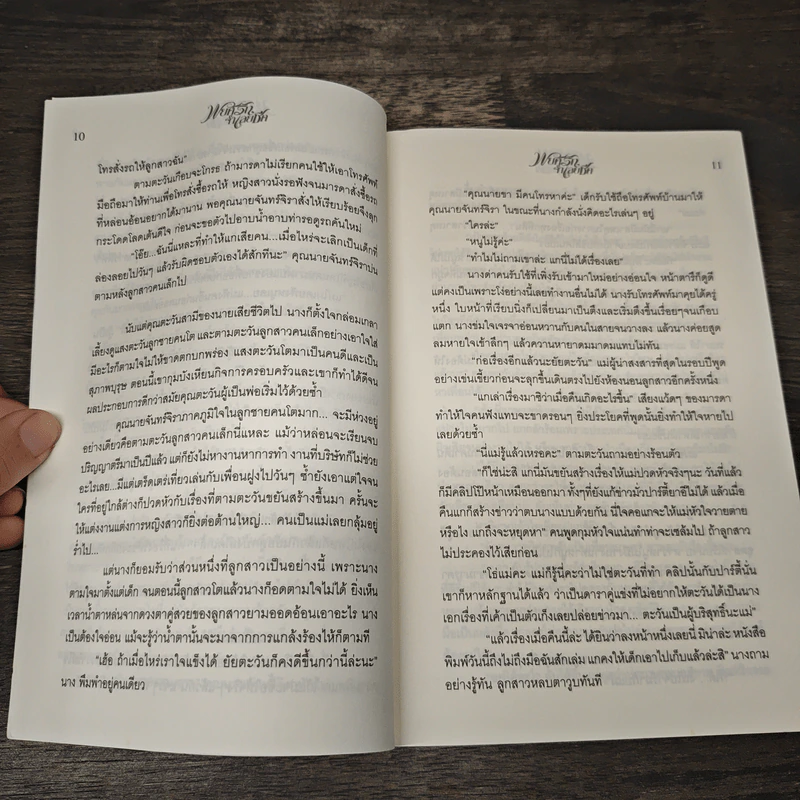 10
โทรสั่งรถให้ลูกสาวฉัน”
ตามตะวันเกือบจะโกรธ ถ้ามารดาไม่เรียกคนใช้ให้เอาโทรศัพท์
มือถือมาให้ท่านเพื่อโทรสั่งซื้อรถให้ หญิงสาวนั่งรอฟังจนมารดาสั่งซื้อรถ
ที่หล่อนอ้อนอยากได้มานาน พอคุณนายจันทร์จิราสั่งให้เรียบร้อยจึงลุก
กระโดดโลดเต้นดีใจ ก่อนจะขอตัวไปอาบน้ำอาบท่ารอดูรถคันใหม่
“โอ๊ย...ฉันนี่แหละที่ทำให้แกเสียคน...เมื่อไหร่จะเลิกเป็นเด็กที่
ล่องลอยไปวันๆ แล้วรับผิดชอบตัวเองได้สักทีนะ” คุณนายจันทร์จิราบ่น
ตามหลังลูกสาวคนเล็กไป
นับแต่คุณตะวันสามีของนายเสียชีวิตไป นางก็ตั้งใจกล่อมเกลา
เลี้ยงดูแสงตะวันลูกชายคนโต และตามตะวันลูกสาวคนเล็กอย่างเอาใจใส่
มีอะไรก็ตามใจไม่ให้ขาดตกบกพร่อง แสงตะวันโตมาเป็นคนดีและเป็น
สุภาพบุรุษ ตอนนี้เขากุมบังเหียนกิจการครอบครัวและเขาก็ทำได้ดีจน
ผลประกอบการดีกว่าสมัยคุณตะวันผู้เป็นพ่อเริ่มไว้ด้วยซ้ำ
คุณนายจันทร์จิราภาคภูมิใจในลูกชายคนโตมาก... จะมีห่วงอยู่
อย่างเดียวคือตามตะวันลูกสาวคนเล็กนี่แหละ แม้ว่าหล่อนจะเรียนจบ
ปริญญาตรีมาเป็นปีแล้ว แต่ก็ยังไม่หางานหาการทำ งานที่บริษัทก็ไม่ช่วย
อะไรเลย...มีแต่เตร็ดเตร่เที่ยวเล่นกับเพื่อนฝูงไปวันๆ ซ้ำยังเอาแต่ใจจน
ใครที่อยู่ใกล้ต่างก็ปวดหัวกับเรื่องที่ตามตะวันขยันสร้างขึ้นมา ครั้นจะ
ให้แต่งงานแต่งการหญิงสาวก็ยิ่งต่อต้านใหญ่... คนเป็นแม่เลยกลุ้มอยู่
ร่ำไป...
แต่นางก็ยอมรับว่าส่วนหนึ่งที่ลูกสาวเป็นอย่างนี้ เพราะนาง
ตามใจมาตั้งแต่เด็ก จนตอนนี้ลูกสาวโตแล้วนางก็อดตามใจไม่ได้ ยิ่งเห็น
เวลาน้ำตาหล่นจากดวงตาคู่สวยของลูกสาวยามออดอ้อนเอาอะไร นาง
เป็นต้องใจอ่อน แม้จะรู้ว่าน้ำตานั้นจะมาจากการแกล้งร้องไห้ก็ตามที
“เฮ้อ ถ้าเมื่อไหร่เราใจแข็งได้ ยัยตะวันก็คงดีขึ้นกว่านี้ล่ะนะ”
นาง พึมพำอยู่คนเดียว
11
“คุณนายขา มีคนโทรหาค่ะ” เด็กรับใช้ถือโทรศัพท์บ้านมาให้
คุณนายจันทร์จิรา ในขณะที่นางกำลังนั่งคิดอะไรเล่นๆ อยู่
“ใครล่ะ”
“หนูไม่รู้ค่ะ”
“ทำไมไม่ถามเขาล่ะ แกนี่ไม่ได้เรื่องเลย”
นางด่าคนรับใช้ที่เพิ่งรับเข้ามาใหม่อย่างอ่อนใจ หน้าตารึก็ดูดี
แต่คงเป็นเพราะโง่อย่างนี้เลยทำงานอื่นไม่ได้ นางรับโทรศัพท์มาคุยได้ครู่
หนึ่ง ใบหน้าที่เรียบนิ่งก็เปลี่ยนมาเป็นตึงและเริ่มตึงขึ้นเรื่อยๆจนเกือบ
แตก นางข่มใจเจรจาอ่อนหวานกับคนในสายจนวางลง แล้วนางค่อยสูด
ลมหายใจเข้าลึกๆ แล้วควานหายาดมมาดมแทบไม่ทัน
“ก่อเรื่องอีกแล้วนะยัยตะวัน” แม่ผู้น่าสงสารที่สุดในรอบปีพูด
อย่างเข่นเขี้ยวก่อนจะลุกขึ้นเดินตรงไปยังห้องนอนลูกสาวอีกครั้งหนึ่ง
“แกเล่าเรื่องมาซิว่าเมื่อคืนเกิดอะไรขึ้น” เสียงแว้ดๆ ของมารดา
ทำให้ใจคนฟังแทบจะขาดรอนๆ ยิ่งประโยคที่พูดนั้นยิ่งทำให้ใจหายไป
เลยด้วยซ้ำ
“นี่แม่รู้แล้วเหรอคะ” ตามตะวันถามอย่างร้อนตัว
“ก็ใช่น่ะสิ แกนี่มันขยันสร้างเรื่องให้แม่ปวดหัวจริงๆนะ วันที่แล้ว
ก็มีคลิปโป๊หน้าเหมือนออกมา ทั้งๆที่ยังแก้ข่าวมั่วปาร์ตี้ยาอีไม่ได้ แล้วเมื่อ
คืนแกก็สร้างข่าวว่าตบนางแบบด้วยกัน นี่ใจคอแกจะให้แม่หัวใจวายตาย
หรือไง แกถึงจะหยุดหา” คนพูดกุมหัวใจแน่นทำท่าจะเซล้มไป ถ้าลูกสาว
ไม่ประคองไว้เสียก่อน
“โธ่แม่คะ แม่ก็รู้นี่คะว่าไม่ใช่ตะวันที่ทำ คลิปนั้นกับปาร์ตี้นั่น
เขาก็หาหลักฐานได้แล้ว ว่าเป็นดาราคู่แข่งที่ไม่อยากให้ตะวันได้เป็นนาง
เอกเรื่องที่เค้าเป็นตัวเก็งเลยปล่อยข่าวมา... ตะวันเป็นผู้บริสุทธิ์นะแม่”
“แล้วเรื่องเมื่อคืนนี้ล่ะ ได้ยินว่าลงหน้าหนึ่งเลยนี่ มิน่าล่ะ หนังสือ
พิมพ์วันนี้ถึงไม่ถึงมือฉันสักเล่ม แกคงให้เด็กเอาไปเก็บแล้วล่ะสิ” นางถาม
อย่างรู้ทัน ลูกสาวหลบตาวูบทันที